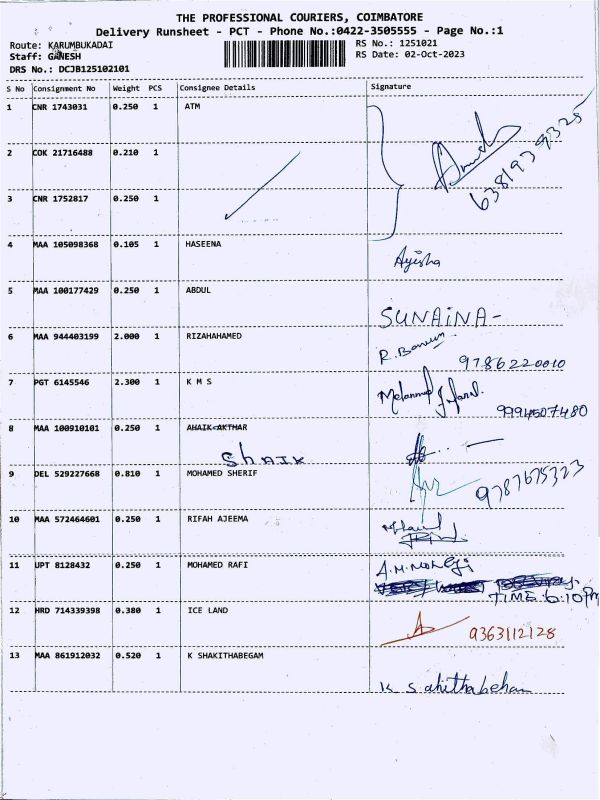 THE PROFESSIONAL COURIERS, COIMBATORE
Delivery Runsheet - PCT - Phone No.:0422-3505555 - Page No.:1
Route: KARUMBUKADAI
RS No.: 1251021
Staff: GANESH
RS Date: 02-Oct-2023
DRS No.: DCJB125102101
S No Consignment No Weight PCS Consignee Details Signature
1 CNR 1743031 0.250 1 ATM
6381939325
2 COK 21716488 0.210 1
3 CNR 1752817 0.250 1
4 MAA 105098368 0.105 1 HASEENA
Ayisha
5 MAA 100177429 0.250 1 ABDUL
SUNAINA-
6 MAA 944403199 2.000 1 RIZAHAHAMED
9786220010
7 PGT 6145546 2.300 1 K M S
9994507480
8 MAA 100910101 0.250 1 AHAIK AKTHAR
SHAIK
9 DEL 529227668 0.810 1 MOHAMED SHERIF
9787675323
10 MAA 572464601 0.250 1 RIFAH AJEEMA
11 UPT 8128432 0.250 1 MOHAMED RAFI
TIME:6:10Pm
12 HRD 714339398 0.380 1 ICE LAND
9363112128
13 MAA 861912032 0.520 1 K SHAKITHABEGAM